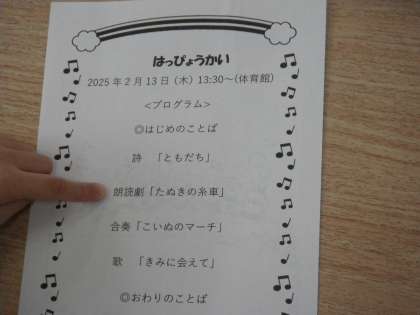 はっぴょうかい
2025年2月13日（木）13:30～(体育館)
<プログラム>
◎はじめのことば
詩　「ともだち」
朗読劇「たぬきの糸車」
合奏「こいぬのマーチ」
歌　「きみに会えて」
◎おわりのことば